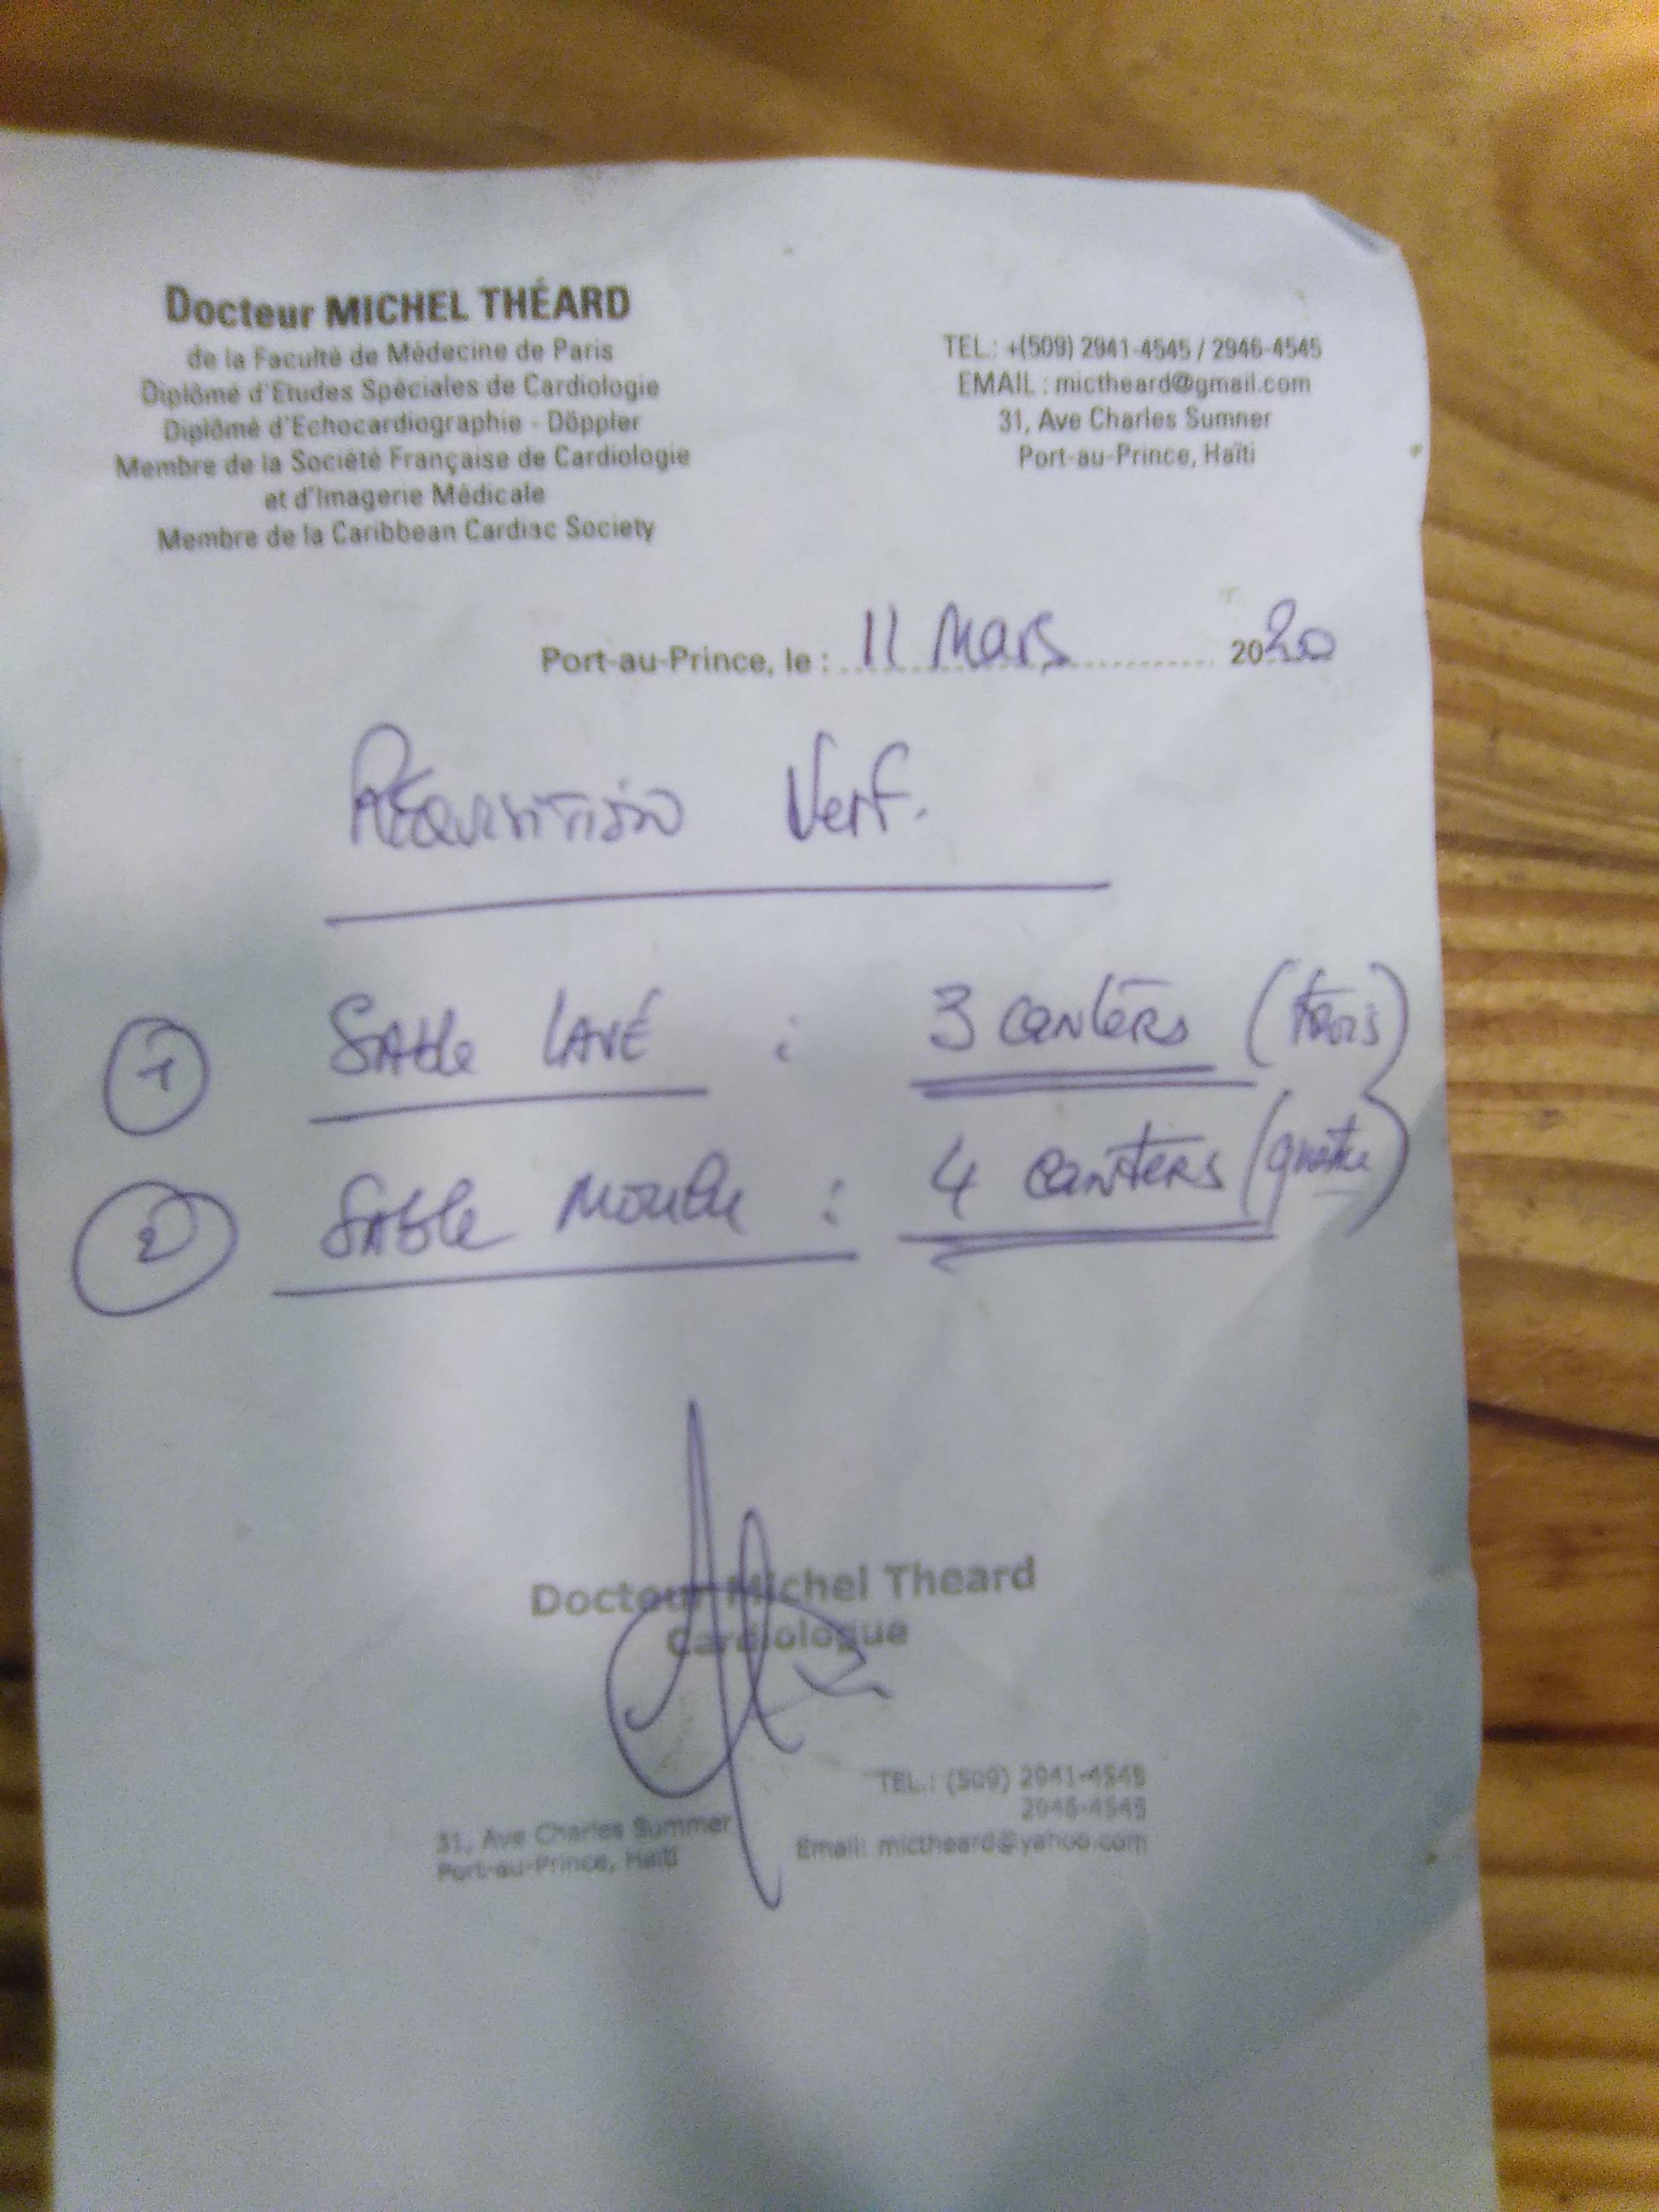 Docteur MICHEL THÉARD
de la Faculté de Médecine de Paris
Diplômé d'Etudes Spéciales de Cardiologie
Diplômé d'Echocardiographie - Döppler
Membre de la Société Française de Cardiologie
et d'Imagerie Médicale
Membre de la Caribbean Cardiac Society
TEL.: +(509) 2941-4545 / 2946-4545
EMAIL : mictheard@gmail.com
31, Ave Charles Sumner
Port-au-Prince, Haïti
Port-au-Prince, le : 11 Mars 2020
Réquisition
1 Sable lavé : 3 canters (trois)
2 Sable : 4 canters (quatre)
Docteur Michel Theard
Cardiologue
TEL.: (509) 2941-4545
2946-4545
31, Ave Charles Summer
Port-au-Prince, Haiti
Email: mictheard@yahoo.com